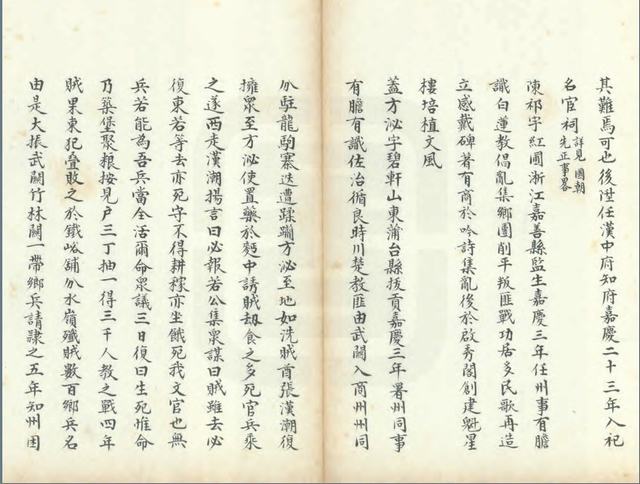 其難焉可也後陞任漢中府知府嘉慶二十三年入祀
名宦祠詳見國朝先正事畧
陳祁字紅圃浙江嘉善縣監生嘉慶三年任州事有膽
識白蓮教倡亂集鄉團削平叛匪戰功居多民歌再造
立感戴碑著有商於吟詩集亂後於啟秀閣創建魁星
樓培植文風
蓋方泌字碧軒山東蒲台縣拔貢嘉慶三年署州同事
有膽有識佐治循良時川楚教匪由武關入商州州同
分駐龍駒寨迭遭蹂躪方泌至地如洗賊首張漢潮復
擁眾至方泌使置藥於麪中誘賊刼食之多死官兵乘
之遂西走漢潮揚言曰必報若公集眾謀曰賊雖去必
復東若等去亦死守不得耕種亦坐餓死我文官也無
兵若能為吾兵當全活爾命眾議三日復曰生死惟命
乃築堡聚粮按見户三丁抽一得三千人教之戰四年
賊果東犯疊敗之於鐵峪舖分水嶺殲賊數百鄉兵名
由是大振武關竹林關一帶鄉兵請隸之五年知州困